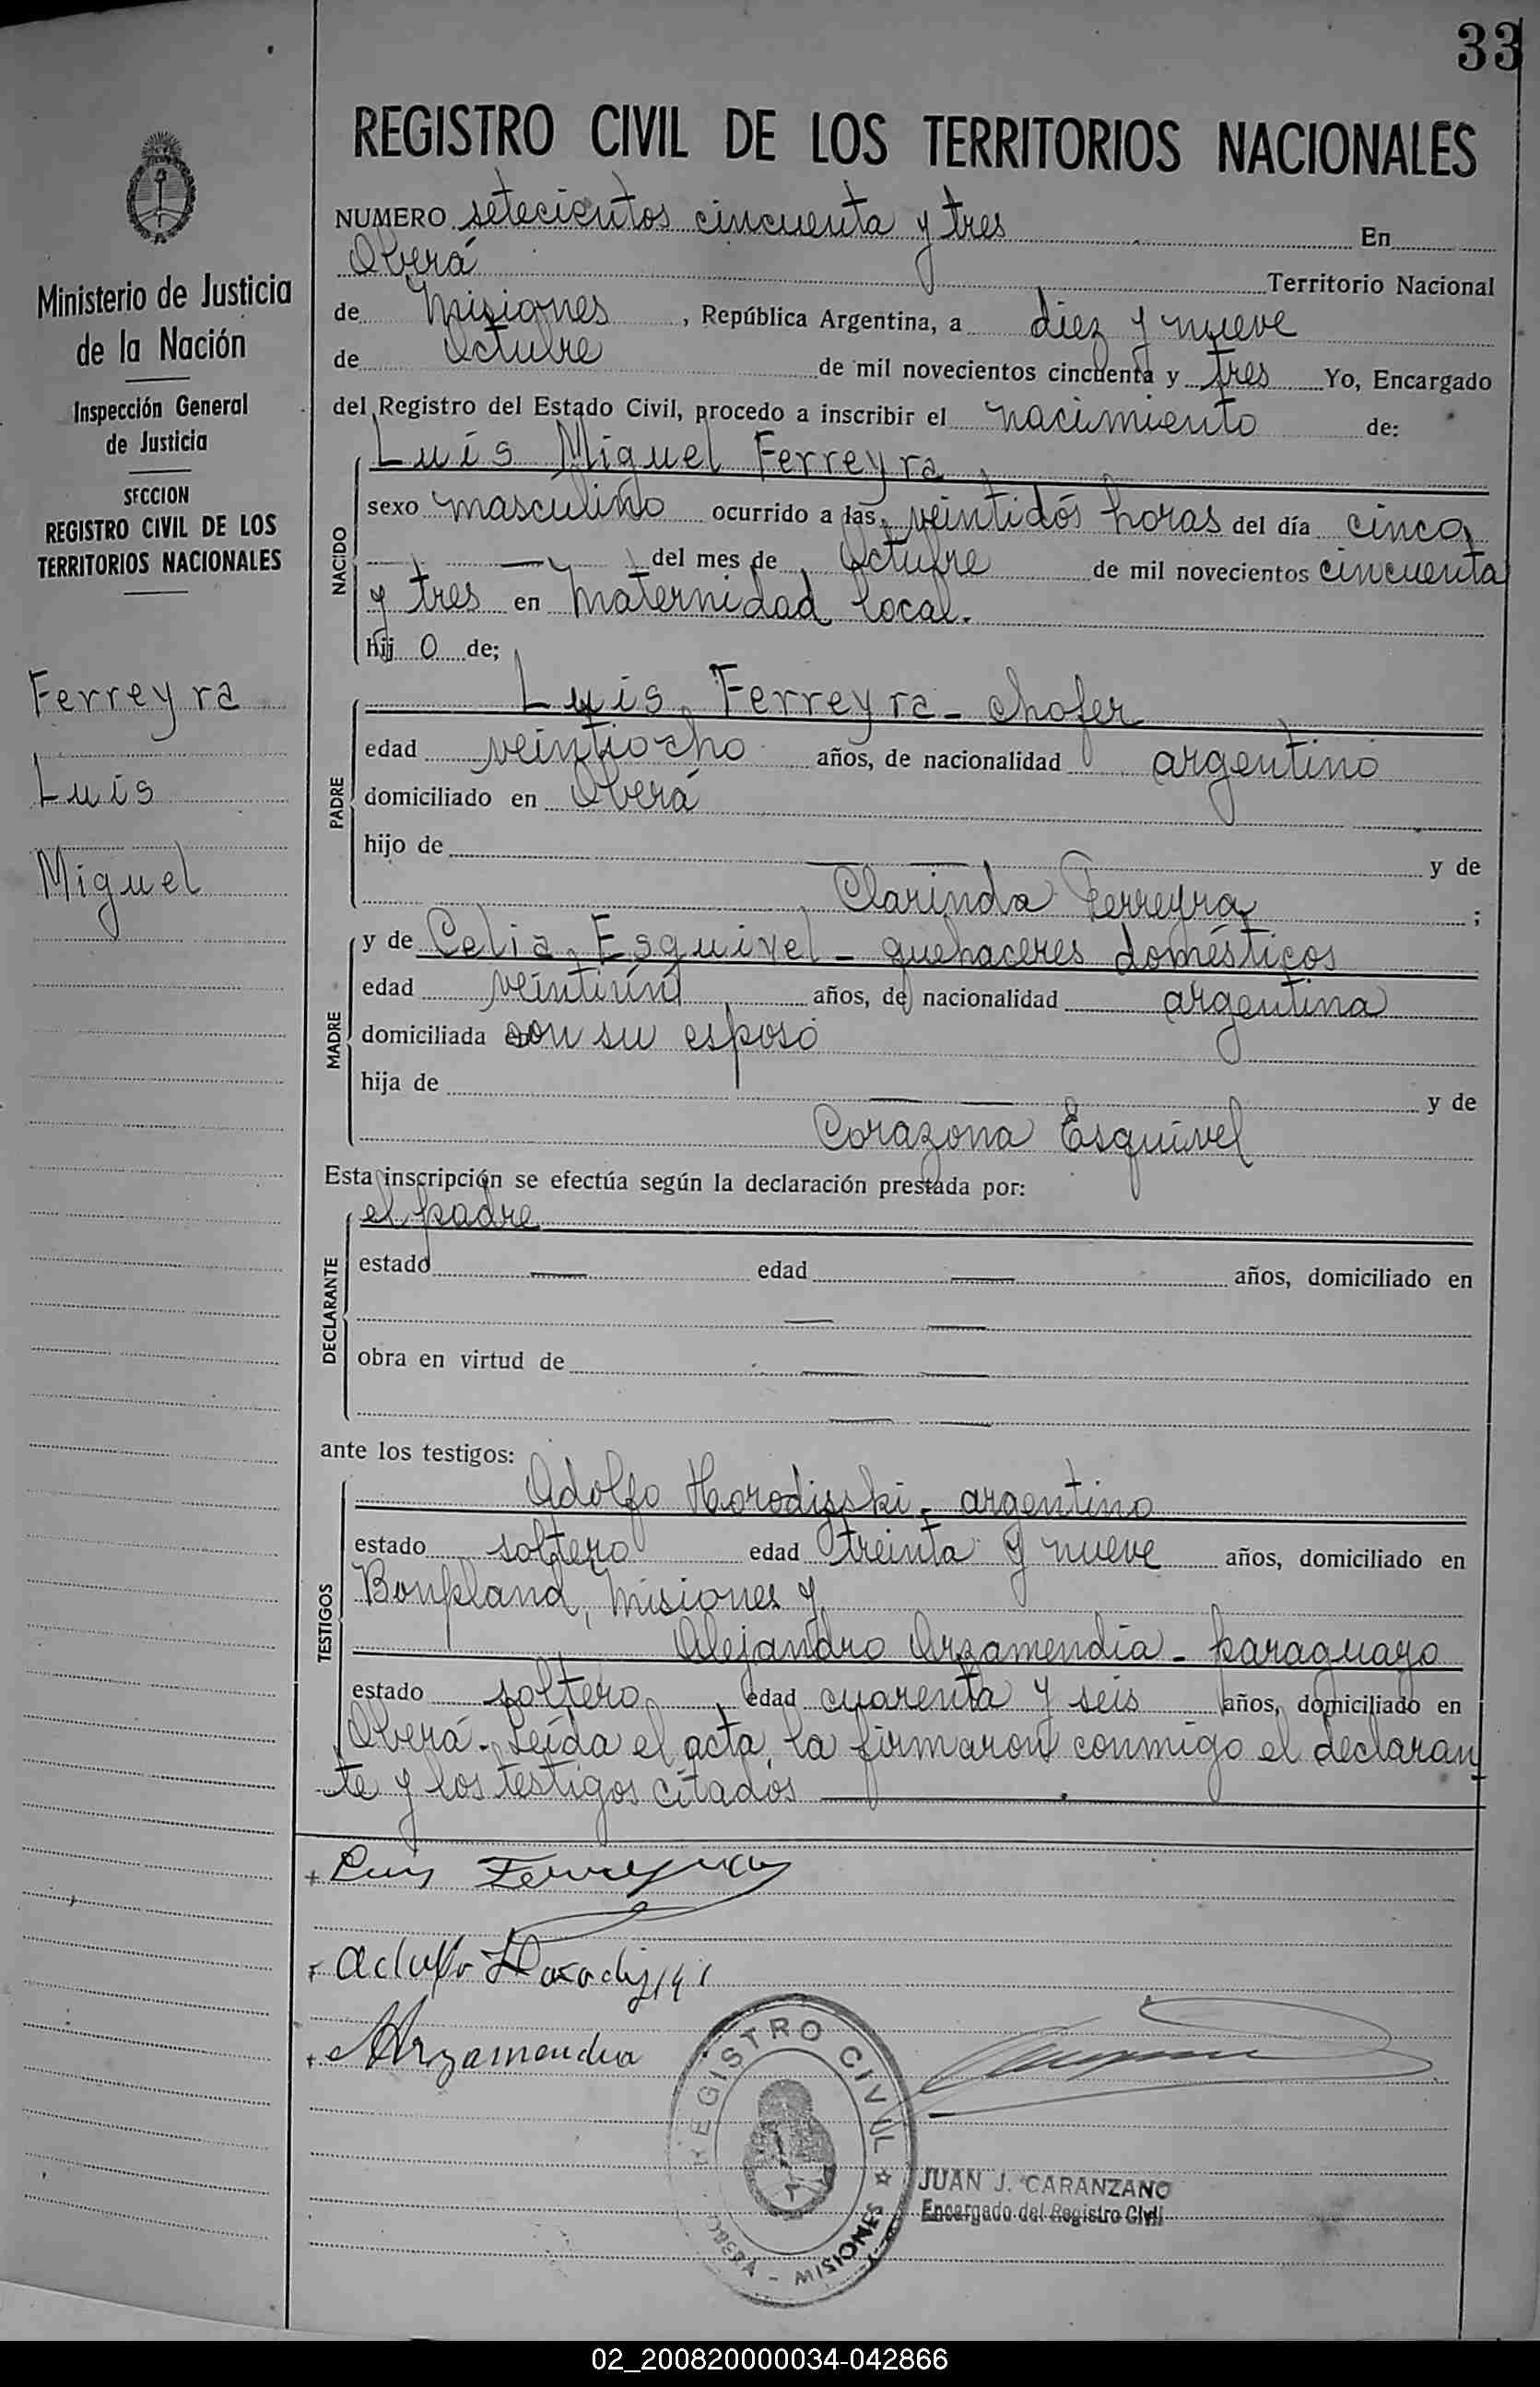 33
REGISTRO CIVIL DE LOS TERRITORIOS NACIONALES
Ministerio de Justicia
de la Nación
Inspección General
de Justicia
SECCION
REGISTRO CIVIL DE LOS
TERRITORIOS NACIONALES
Ferreyra
Luis
Miguel
NUMERO setecientos cincuenta y tres En
Oberá Territorio Nacional
de Misiones, República Argentina, a diez y nueve
de Octubre de mil novecientos cincuenta y tres Yo, Encargado
del Registro del Estado Civil, procedo a inscribir el nacimiento de:
Luis Miguel Ferreyra
NACIDO
sexo masculino ocurrido a las veintidós horas del día cinco
del mes de Octubre de mil novecientos cincuenta
y tres en Maternidad local.
hij o de;
PADRE
Luis Ferreyra - chofer
edad veintiocho años, de nacionalidad argentino
domiciliado en Oberá
hijo de y de
Clarinda Ferreyra ;
MADRE
y de Celia Esquivel - quehaceres domésticos
edad veintiún años, de nacionalidad argentina
domiciliada con su esposo
hija de y de
Corazona Esquivel
Esta inscripción se efectúa según la declaración prestada por:
DECLARANTE
el padre
estado edad años, domiciliado en
obra en virtud de
ante los testigos:
TESTIGOS
Adolfo Horodisski - argentino
estado soltero edad treinta y nueve años, domiciliado en
Bonpland, Misiones y
Alejandro Arzamendia - paraguayo
estado soltero edad cuarenta y seis años, domiciliado en
Oberá. Leída el acta, la firmaron conmigo el declaran
te y los testigos citados
+ Luis Ferreyra
Adolfo
Arzamendia
REGISTRO CIVIL
OBERÁ - MISIONES
JUAN J. CARANZANO
Encargado del Registro Civil
02_200820000034-042866